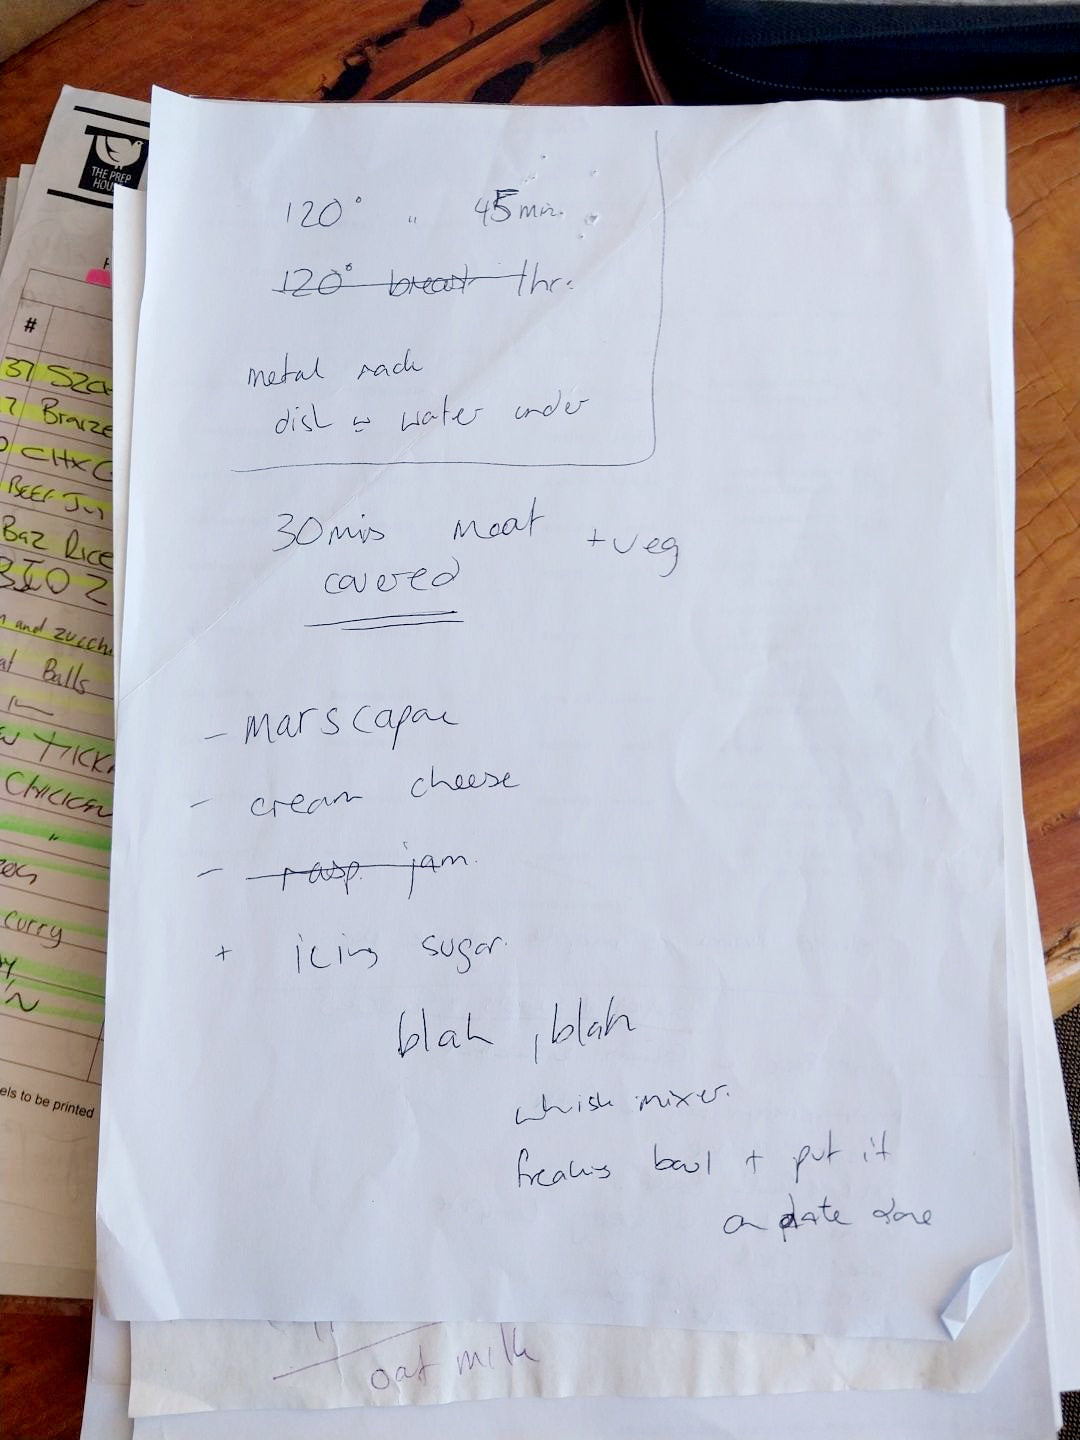 THE PREP
#
37 SZCH
Braize
CHX C
BEEF
Baz Rice
and zucchi
Balls
TICKA
CHICKEN
"
curry
els to be printed
120° " 45 min.
120° breast 1hr.
metal rack
dish w water under
30 mins meat + veg
covered
- marscapae
- cream cheese
- rasp. jam.
+ icing sugar.
blah, blah
whisk mixer.
freaking bowl + put it
on plate done
oat milk